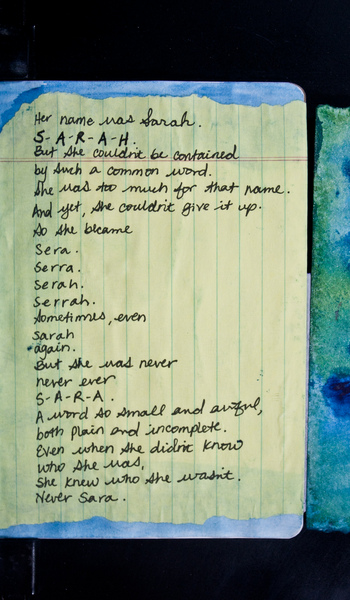 Her name was Sarah.
S-A-R-A-H.
But she couldn't be contained
by such a common word.
She was too much for that name.
And yet, she couldn't give it up.
So she became
Sera.
Serra.
Serah.
Serrah.
Sometimes, even
Sarah
again.
But she was never
never ever
S-A-R-A.
A word so small and awful,
both plain and incomplete.
Even when she didn't know
who she was,
She knew who she wasn't.
Never Sara.